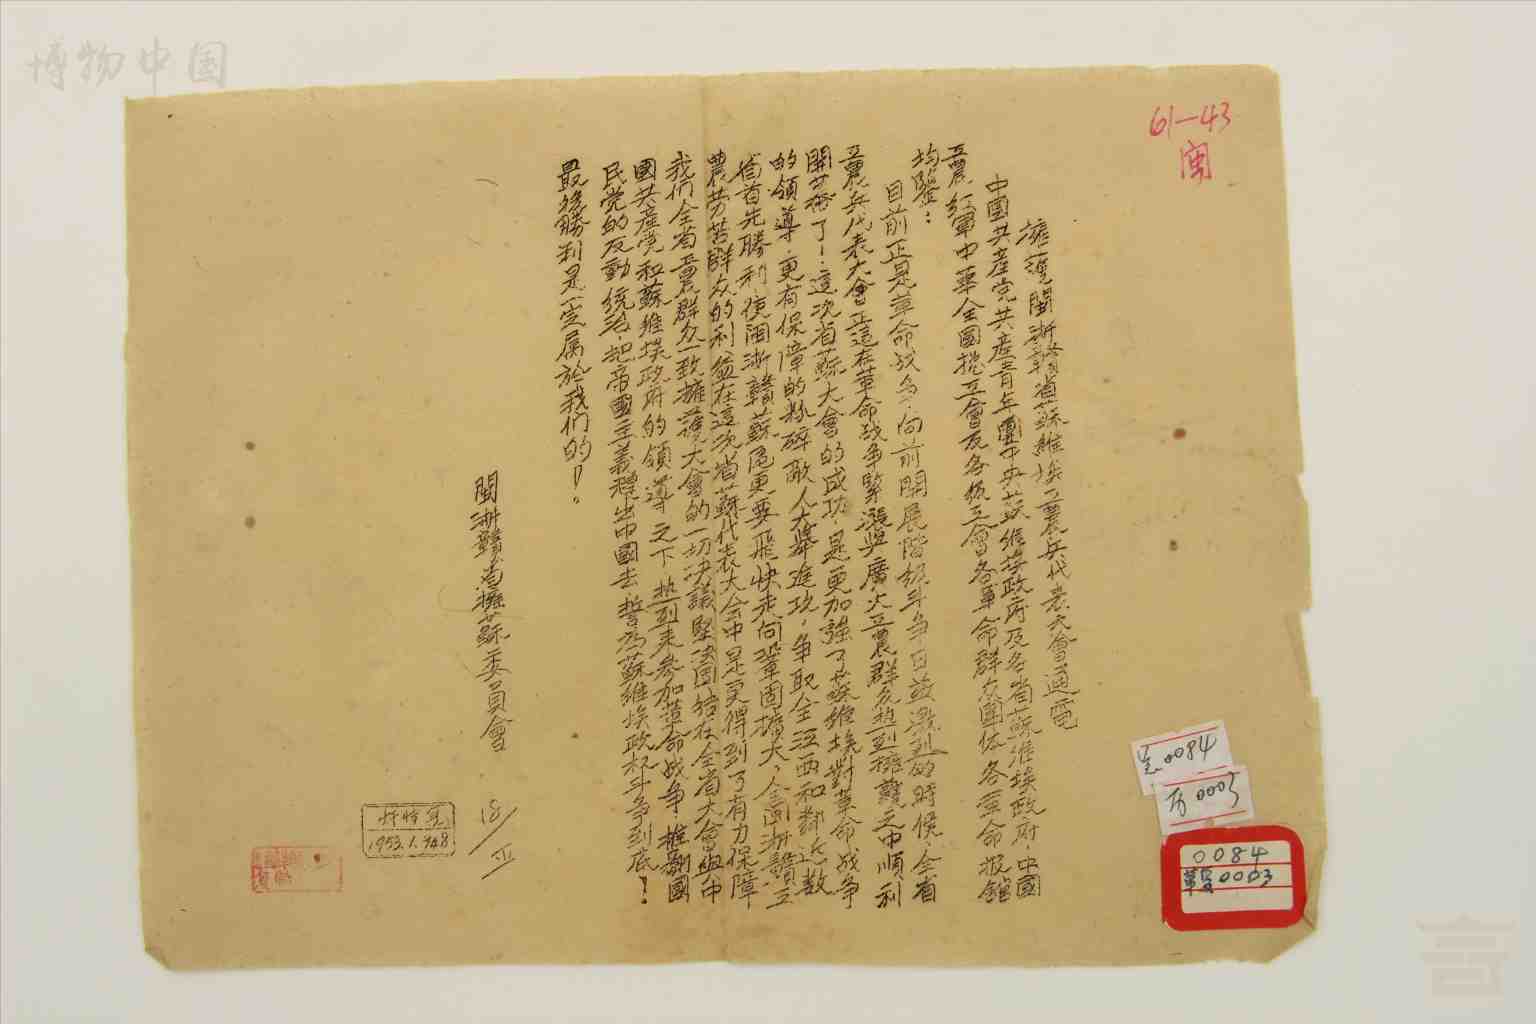 博物中国
61—43
闽
擁護閩浙贛省蘇維埃工農兵代表大會通電
中國共產党共產青年團中央蘇維埃政府及各省蘇維埃政府，中國
工農紅軍中華全國總工會及各級工會各革命群众團体各革命报舘
均鑒：
目前正是革命战争，向前開展階級斗争日益激烈的時候，全省
工農兵代表大會正這在革命战争緊漲與廣大工農群众热烈擁護之中順利
開幕了！這次省蘇大會的成功，是更加強了蘇維埃對革命战争
的領導，更有保障的粉碎敵人大舉進攻，争取全江西和鄰近数
省首先勝利，使閩浙贛蘇區更要飛快走向鞏固擴大，全閩浙贛工
農劳苦群众的利益在這次省蘇代表大会中是更得到了有力保障，
我們全省工農群众一致擁護大會的一切决議堅决團結在全省大會與中
國共產党和蘇維埃政府的領導之下，热烈来参加革命战争，推翻國
民党的反動統治，把帝國主義趕出中國去，誓为蘇維埃政权斗争到底！
最後勝利是一定属於我們的！。
閩浙贛省擁蘇委員會
18/
1953.1.948
0084
0003
0084
0003